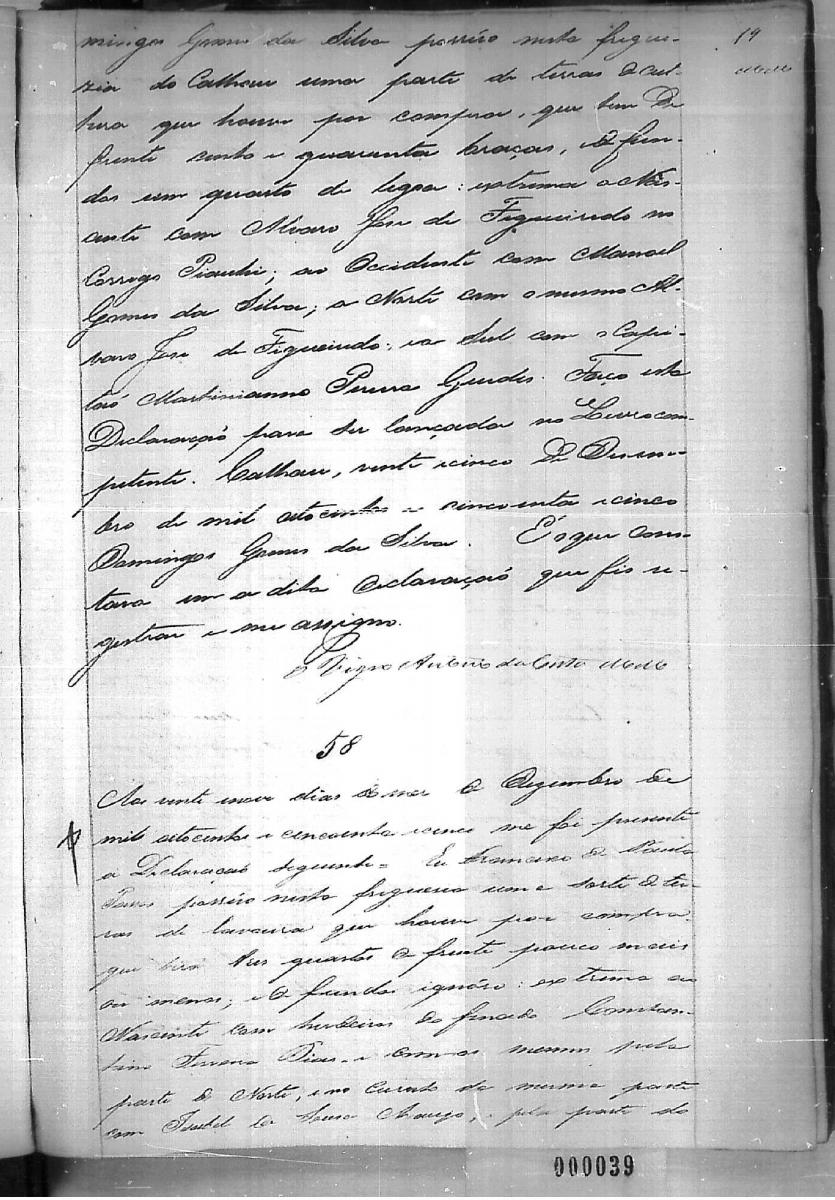 mingos Gomes da Silva possúo nesta fregue-
zia do Calhau uma parte de terras de cul-
tura que houve por compra, que tem de
frente cento e quarenta braças, e de fun-
dos um quarto de legoa: extrema ao Nas-
cente com Alvaro José de Figueiredo no
Corrego Piauhi; ao Occidente com Manoel
Gomes da Silva; a Norte com o mesmo Al-
varo José de Figueiredo; e a Sul com o Capi-
taó Martinianno Pereira Guedes. Faço esta
Declaraçaó para ser lançada no Livro com-
petente. Calhau, vinte e cinco de Desem-
bro de mil oitocentos e cincoenta e cinco
Domingos Gomes da Silva. É o que cons-
tava em a dita declaraçaó que fis re-
gistrar e me assigno.
O Vigro Antonio da Costa
58
Aos vinte e nove dias do mes de Dezembro de
mil oitocentos e cincoenta e cinco me foi presente
a Declaracaó seguinte = Eu Francisco de Paula
possúo nesta freguesia uma sorte de ter-
ras de lavoura que houve por compra
que terá tres quartos de frente pouco mais
ou menos; e de fundos ignóro: extrema ao
Nascente com herdeiros do finado Constan-
tino Ferreira Dias, e com os mesmos pela
parte do Norte, e no da mesma parte
com Isabel de Sousa Araujo, e pela parte do
19
000039